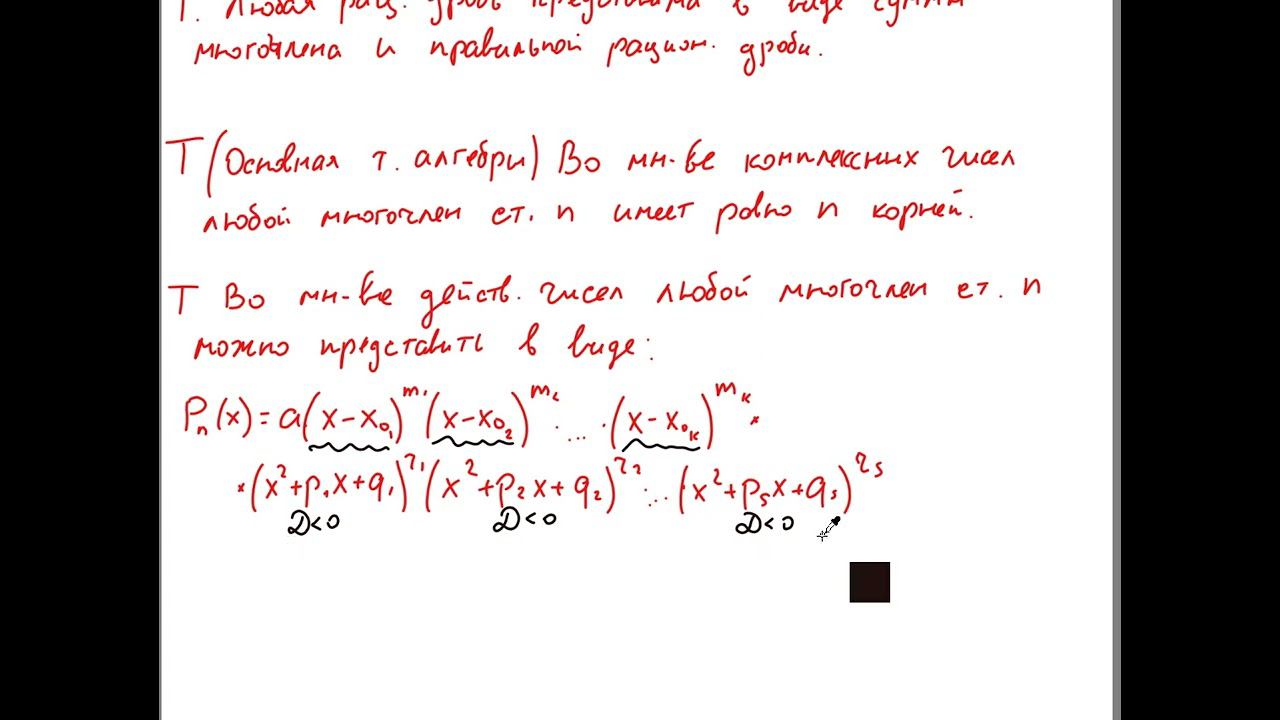 Т. Любая рац. дробь представима в виде суммы
многочлена и правильной рацион. дроби.
Т (Основная т. алгебры) Во мн-ве комплексных чисел
любой многочлен ст. n имеет ровно n корней.
Т Во мн-ве действ. чисел любой многочлен ст. n
можно представить в виде:
Pₙ(x) = a(x-x₀₁)^m₁ (x-x₀₂)^m₂ · ... · (x-x₀ₖ)^mₖ *
* (x²+p₁x+q₁)^r₁ (x²+p₂x+q₂)^r₂ ... (x²+pₛx+qₛ)^rₛ
D<0 D<0 D<0